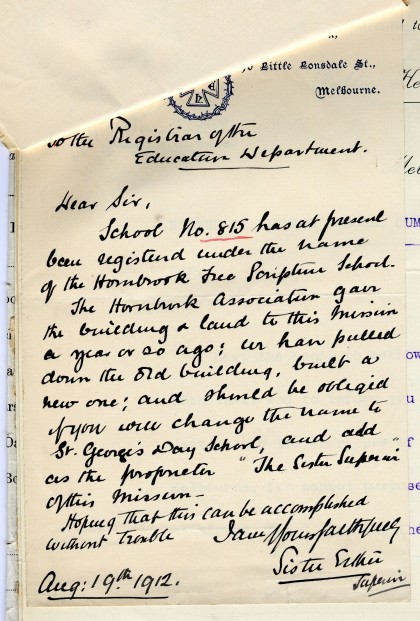 Little Lonsdale St.,
Melbourne.
To the Registrar of the
Education Department.
Dear Sir,
School No. 815 has at present
been registered under the name
of the Hornbrook Free Scripture School.
The Hornbrook Association gave
the building & land to this Mission
a year or so ago; we have pulled
down the old building, built a
new one; and should be obliged
if you will change the name to
St. George's Day School, and add
as the proprietor "The Sister Superior"
of this Mission -
Hoping that this can be accomplished
without trouble I am Yours faithfully
Sister Esther
Superior
Aug: 19th 1912.